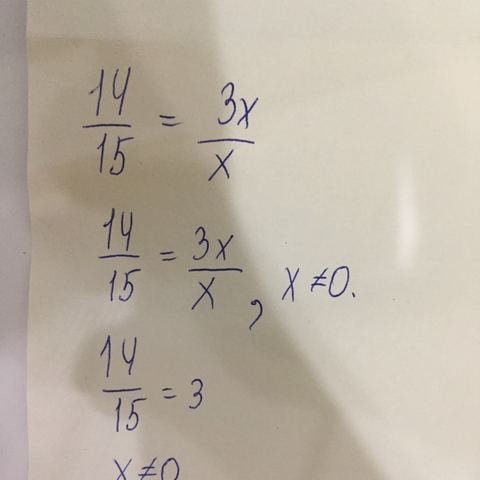 14/15 = 3x/x
14/15 = 3x/x, x ≠ 0.
14/15 = 3
x ≠ 0